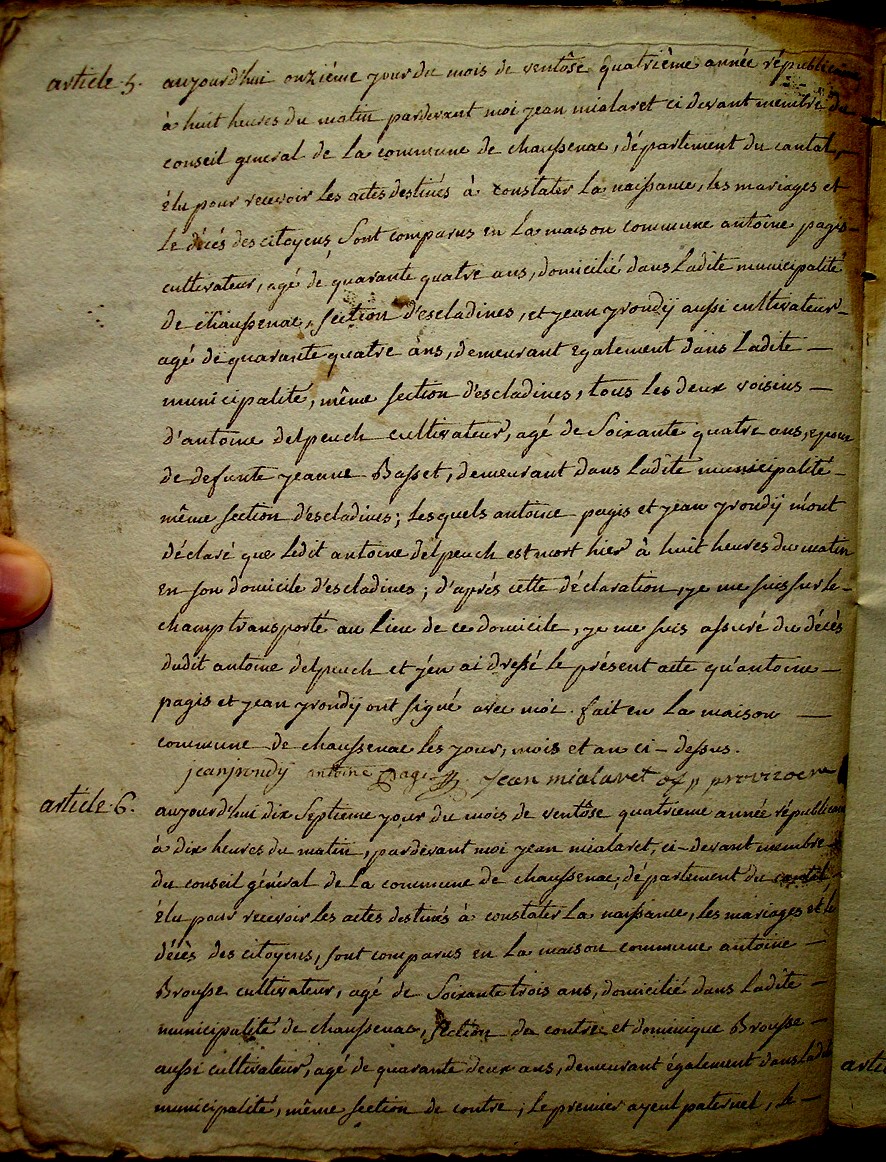 article 5. aujourd'hui onziéme jour du mois de ventôse quatriéme année républicaine
à huit heures du matin pardevant moi jean mialaret ci devant membre du
conseil general de la commune de chaussenac, département du cantal,
élu pour recevoir les actes destinés à constater la naissance, les mariages et
le décés des citoyens, sont comparus en la maison commune antoine pagis
cultivateur, agé de quarante quatre ans, domicilié dans ladite municipalité
de chaussenac, section d'escladines, et jean jrondij aussi cultivateur
agé de quarante quatre ans, demeurant egalement dans ladite
municipalité, même section d'escladines, tous les deux voisins
d'antoine delpeuch cultivateur, agé de soixante quatre ans, epoux
de defunte jeanne Basset, demeurant dans ladite municipalité
même section d'escladines; lesquels antoine pagis et jean jrondij m'ont
déclaré que ledit antoine delpeuch est mort hier à huit heures du matin
en son domicile d'escladines; d'aprés cette déclaration, je me suis sur le
champ transporté au lieu de ce domicile, je me suis assuré du décés
dudit antoine delpeuch et j'en ai dressé le présent acte qu'antoine
pagis et jean jrondij ont signé avec moi. fait en la maison
commune de chaussenac les jour, mois et an ci-dessus.
jean jrondij antoine pagis jean mialaret
article 6. aujourd'hui dix septieme jour du mois de ventôse quatrieme année républicaine
à dix heures du matin, pardevant moi jean mialaret, ci-devant membre
du conseil général de la commune de chaussenac, département du cantal
élu pour recevoir les actes destinés à constater la naissance, les mariages et le
décés des citoyens, sont comparus en la maison commune antoine
Brousse cultivateur, agé de soixante trois ans, domicilié dans ladite
municipalité de chaussenac, section de contre et dominique Brousse
aussi cultivateur, agé de quarante deux ans, demeurant également dans ladite
municipalité, même section de contre; le premier ayeul paternel, le